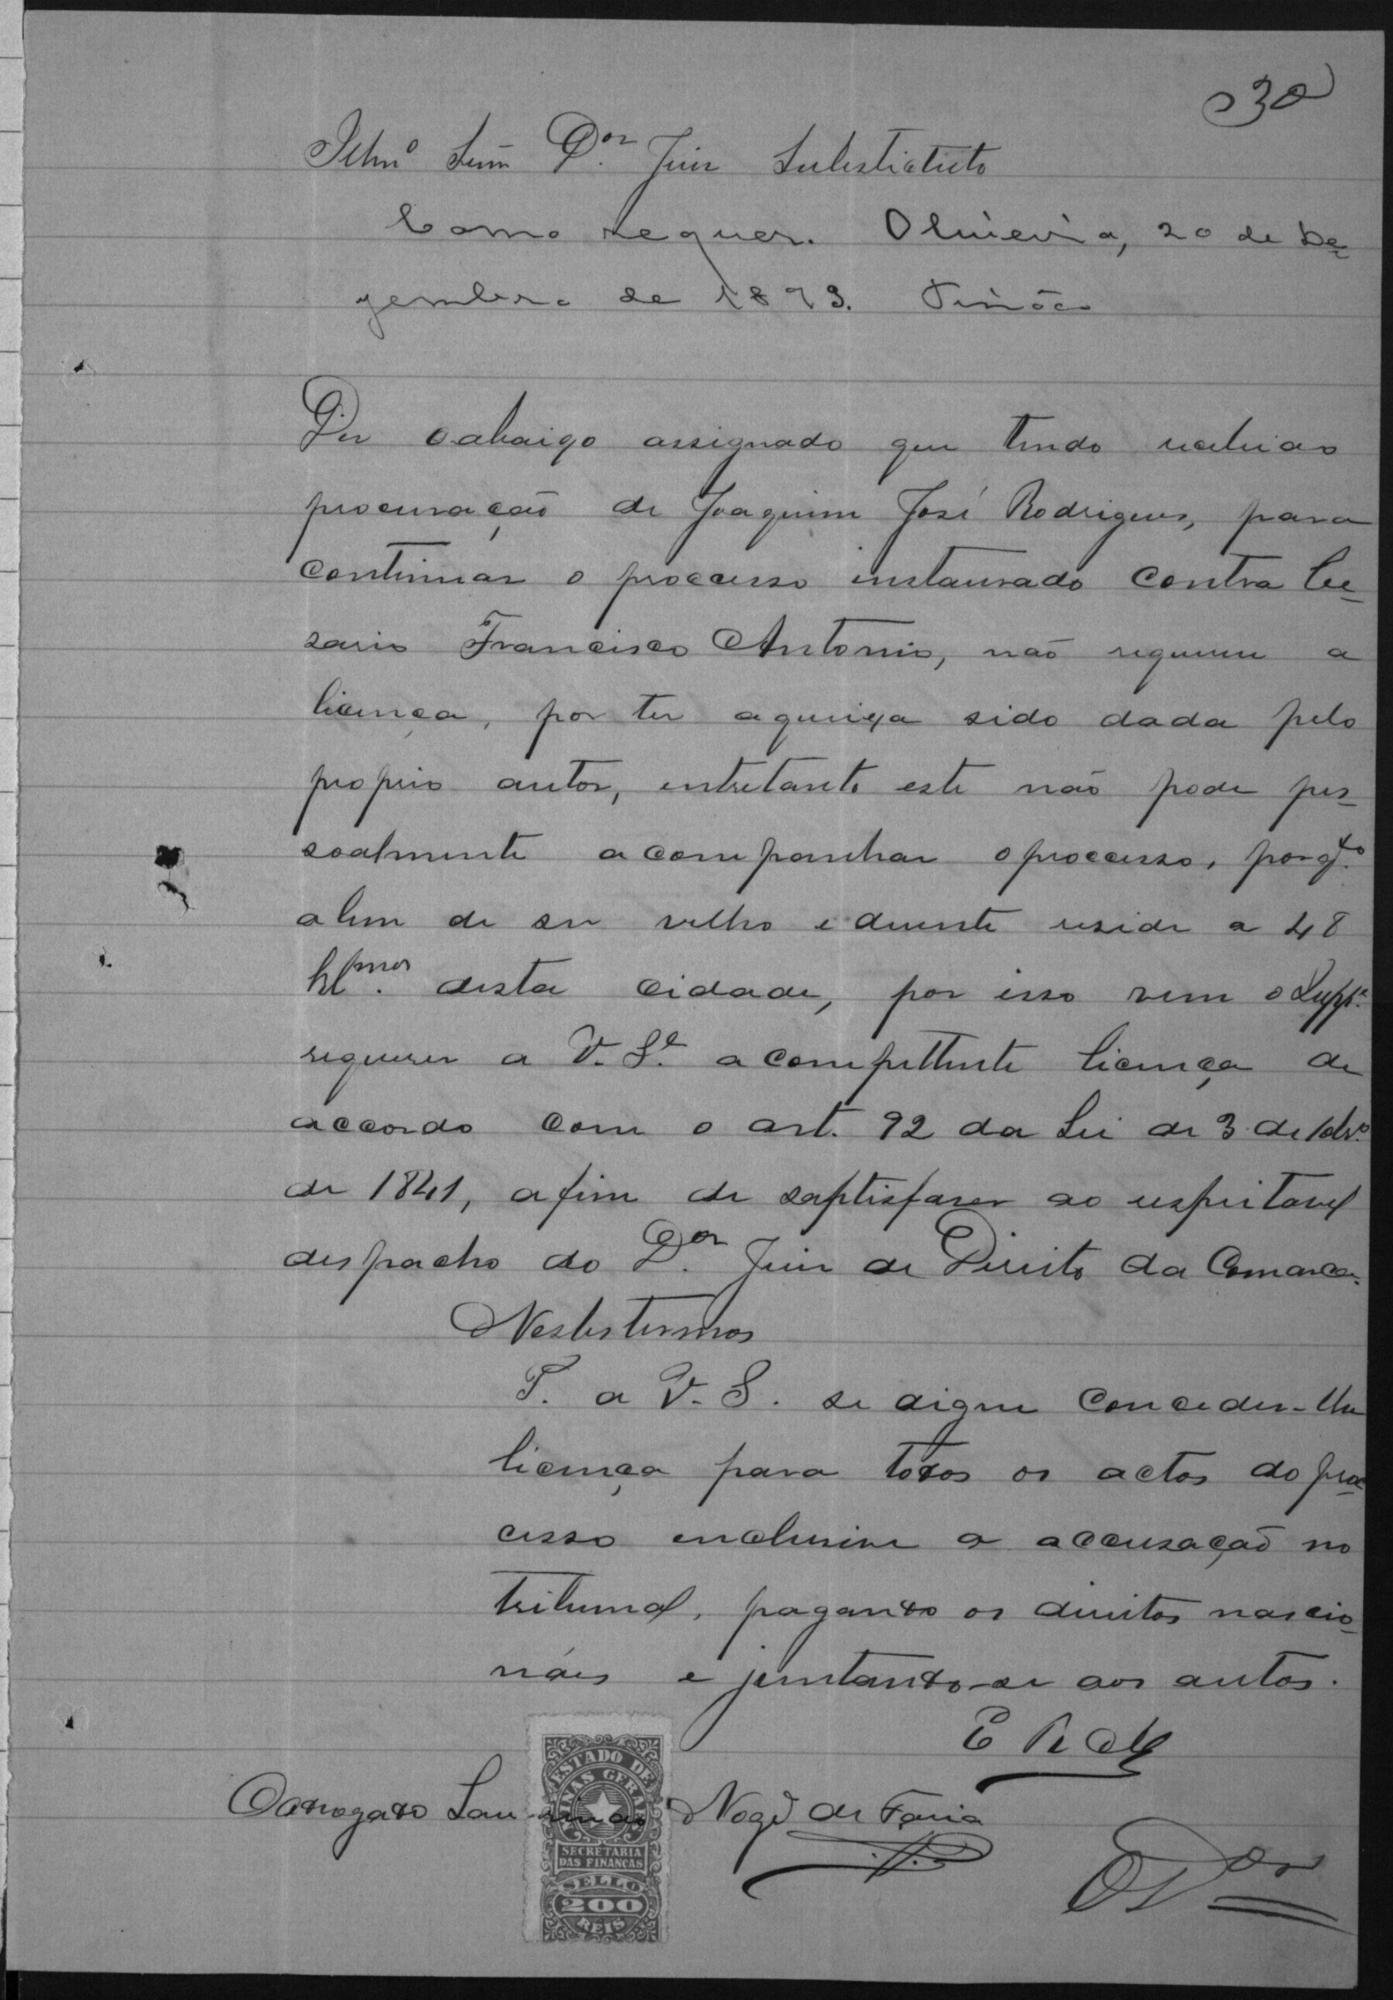 30
Illmo Senr Dor Juiz Substituto
Como requer. Oliveira, 20 de De-
zembro de 1893. Tinôco
Diz o abaixo assignado que tendo recebido
procuração de Joaquim José Rodrigues, para
continuar o processo instaurado contra Ce-
sario Francisco Antonio, não requereu a
licença, por ter a queixa sido dada pelo
proprio autor, entretanto este não pode pes-
soalmente acompanhar o processo, porqto
alem de ser velho e duente reside a 48
klmos. desta cidade, por isso vem o Suppe
requerer a V. Sa. a compettente licença de
accordo com o art. 92 da Lei de 3 de 10bro
de 1841, afim de saptisfazer ao respeitavel
despacho do Dor Juiz de Direito da Comarca.
Nestes termos
P. a V. S. se digne conceder-lhe
licença para todos os actos do pro-
cesso incluzive a accusação no
tribunal, pagando os direitos nascio-
náes e juntando-se aos autos.
E R Mce
O advogado Nogra de Faria
ESTADO DE
MINAS GERAES
SECRETARIA
DAS FINANÇAS
SELLO
200
REIS